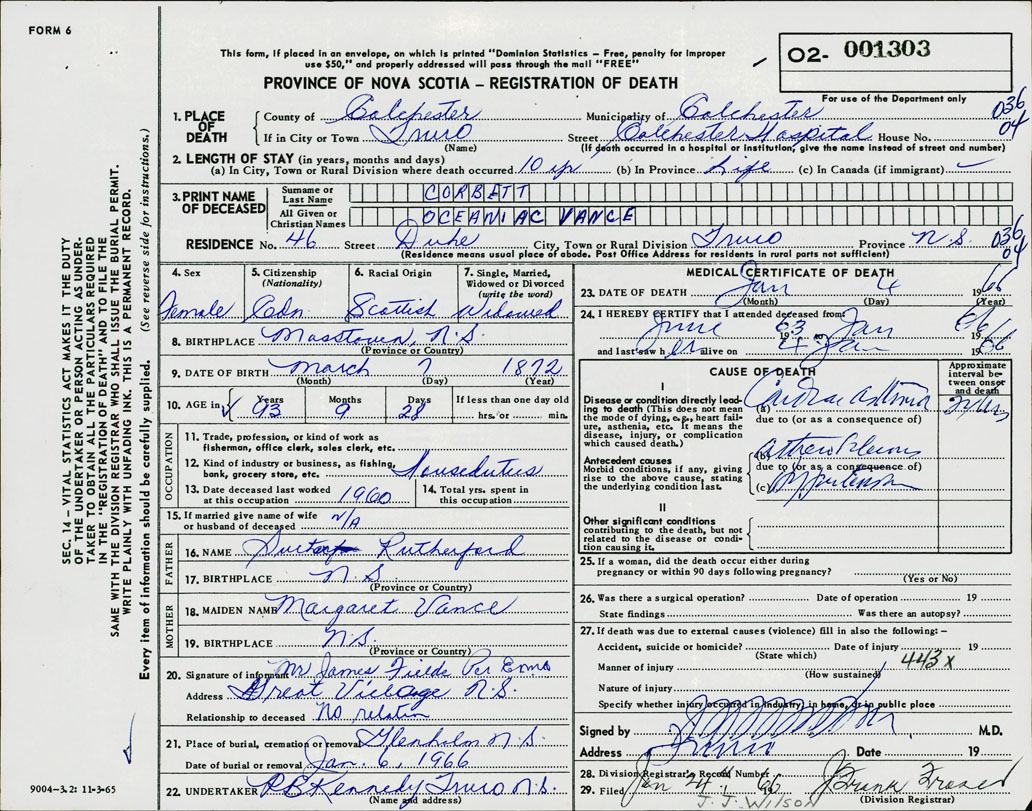 FORM 6
This form, if placed in an envelope, on which is printed "Dominion Statistics – Free, penalty for improper
use $50," and properly addressed will pass through the mail "FREE"
O2- 001303
PROVINCE OF NOVA SCOTIA – REGISTRATION OF DEATH
For use of the Department only
1. PLACE OF DEATH
County of Colchester Municipality of Colchester 036
If in City or Town Truro Street Colchester Hospital House No. 04
(Name) (If death occurred in a hospital or institution, give the name instead of street and number)
2. LENGTH OF STAY (in years, months and days)
(a) In City, Town or Rural Division where death occurred 10 yr (b) In Province Life (c) In Canada (if immigrant) —
3. PRINT NAME OF DECEASED
Surname or Last Name CORBETT
All Given or Christian Names OCEANIAC VANCE
RESIDENCE No. 46 Street Duke City, Town or Rural Division Truro Province N.S. 036
04
(Residence means usual place of abode. Post Office Address for residents in rural parts not sufficient)
4. Sex
Female
5. Citizenship
(Nationality)
Cdn.
6. Racial Origin
Scottish
7. Single, Married,
Widowed or Divorced
(write the word)
Widowed
8. BIRTHPLACE Masstown, N.S.
(Province or Country)
9. DATE OF BIRTH March 7 1872
(Month) (Day) (Year)
10. AGE in
Years Months Days If less than one day old
93 9 28 hrs. or min.
OCCUPATION
11. Trade, profession, or kind of work as
fisherman, office clerk, sales clerk, etc.
12. Kind of industry or business, as fishing,
bank, grocery store, etc. Houseduties
13. Date deceased last worked
at this occupation 1960
14. Total yrs. spent in
this occupation
15. If married give name of wife
or husband of deceased N/A
FATHER
16. NAME Rutherford
17. BIRTHPLACE N.S.
(Province or Country)
MOTHER
18. MAIDEN NAME Margaret Vance
19. BIRTHPLACE N.S.
(Province or Country)
20. Signature of informant Mr James Fields Per
Address Great Village N.S.
Relationship to deceased No relation
21. Place of burial, cremation or removal Glenholm N.S.
Date of burial or removal Jan. 6, 1966
22. UNDERTAKER Kennedy Truro N.S.
(Name and address)
MEDICAL CERTIFICATE OF DEATH
23. DATE OF DEATH Jan 4 1966
(Month) (Day) (Year)
24. I HEREBY CERTIFY that I attended deceased from:
June 1963 to Jan 66
and last saw her alive on 4 Jan 1966
CAUSE OF DEATH
Approximate
interval be-
tween onset
and death
I
Disease or condition directly lead-
ing to death (This does not
mean the mode of dying, e.g., heart fail-
ure, asthenia, etc. It means the
disease, injury, or complication
which caused death.)
(a) Cardiac Asthma
due to (or as a consequence of)
Antecedent causes
Morbid conditions, if any, giving
rise to the above cause, stating
the underlying condition last.
(b)
due to (or as a consequence of)
(c)
II
Other significant conditions
contributing to the death, but not
related to the disease or condi-
tion causing it.
25. If a woman, did the death occur either during
pregnancy or within 90 days following pregnancy?
(Yes or No)
26. Was there a surgical operation? Date of operation 19
State findings Was there an autopsy?
27. If death was due to external causes (violence) fill in also the following: –
Accident, suicide or homicide? Date of injury 19
(State which) 443 x
Manner of injury
(How sustained)
Nature of injury
Specify whether injury occurred in industry, in home, or in public place
Signed by M.D.
Address Truro Date 19
28. Division Registrar's Record Number
29. Filed Jan 66 Frank Fraser
J. J. WILSON (Division Registrar)
SEC. 14 – VITAL STATISTICS ACT MAKES IT THE DUTY
OF THE UNDERTAKER OR PERSON ACTING AS UNDER-
TAKER TO OBTAIN ALL THE PARTICULARS REQUIRED
IN THE "REGISTRATION OF DEATH" AND TO FILE THE
SAME WITH THE DIVISION REGISTRAR WHO SHALL ISSUE THE BURIAL PERMIT.
WRITE PLAINLY WITH UNFADING INK. THIS IS A PERMANENT RECORD.
Every item of information should be carefully supplied. (See reverse side for instructions.)
9004–3.2: 11-3-65